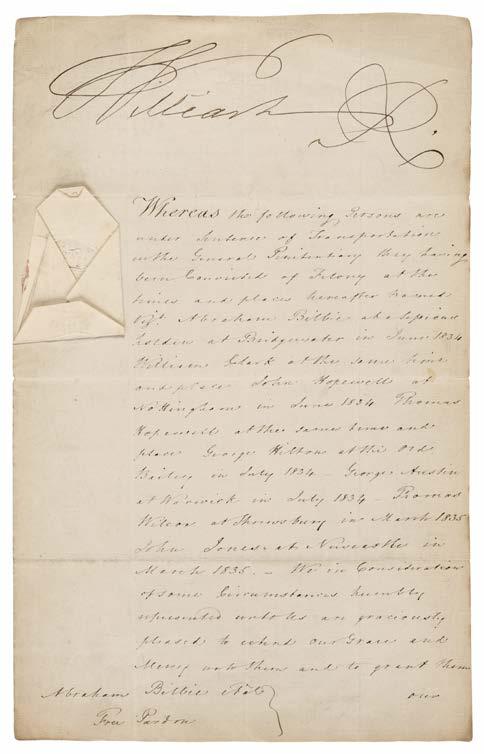 William R.
Whereas the following Persons are
under Sentence of Transportation
in the General Penitentiary they having
been Convicted of Felony at the
times and places hereafter named
Vizt. Abraham Bilbie at a Sessions
holden at Bridgewater in June 1834
William Clark at the same time
and place John Hopewell at
Nottingham in June 1834 Thomas
Hopewell at the same time and
place George Hilton at the Old
Bailey in July 1834 - George Austin
at Warwick in July 1834 - Thomas
Wilcox at Shrewsbury in March 1835
John Jones at Newcastle in
March 1835. - We in Consideration
of some Circumstances humbly
represented unto Us are graciously
pleased to extend our Grace and
Mercy unto them and to grant them
Abraham Bilbie &
our
Free Pardon